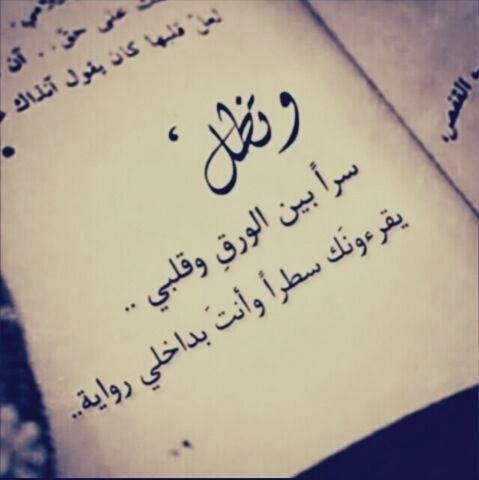 على حق .. آن
لعل قلبها كان يقول آنذاك
القفص،
و تظل ،
سراً بين الورقِ وقلبي ..
يقرءونَك سطراً وأنتَ بداخلي رواية..